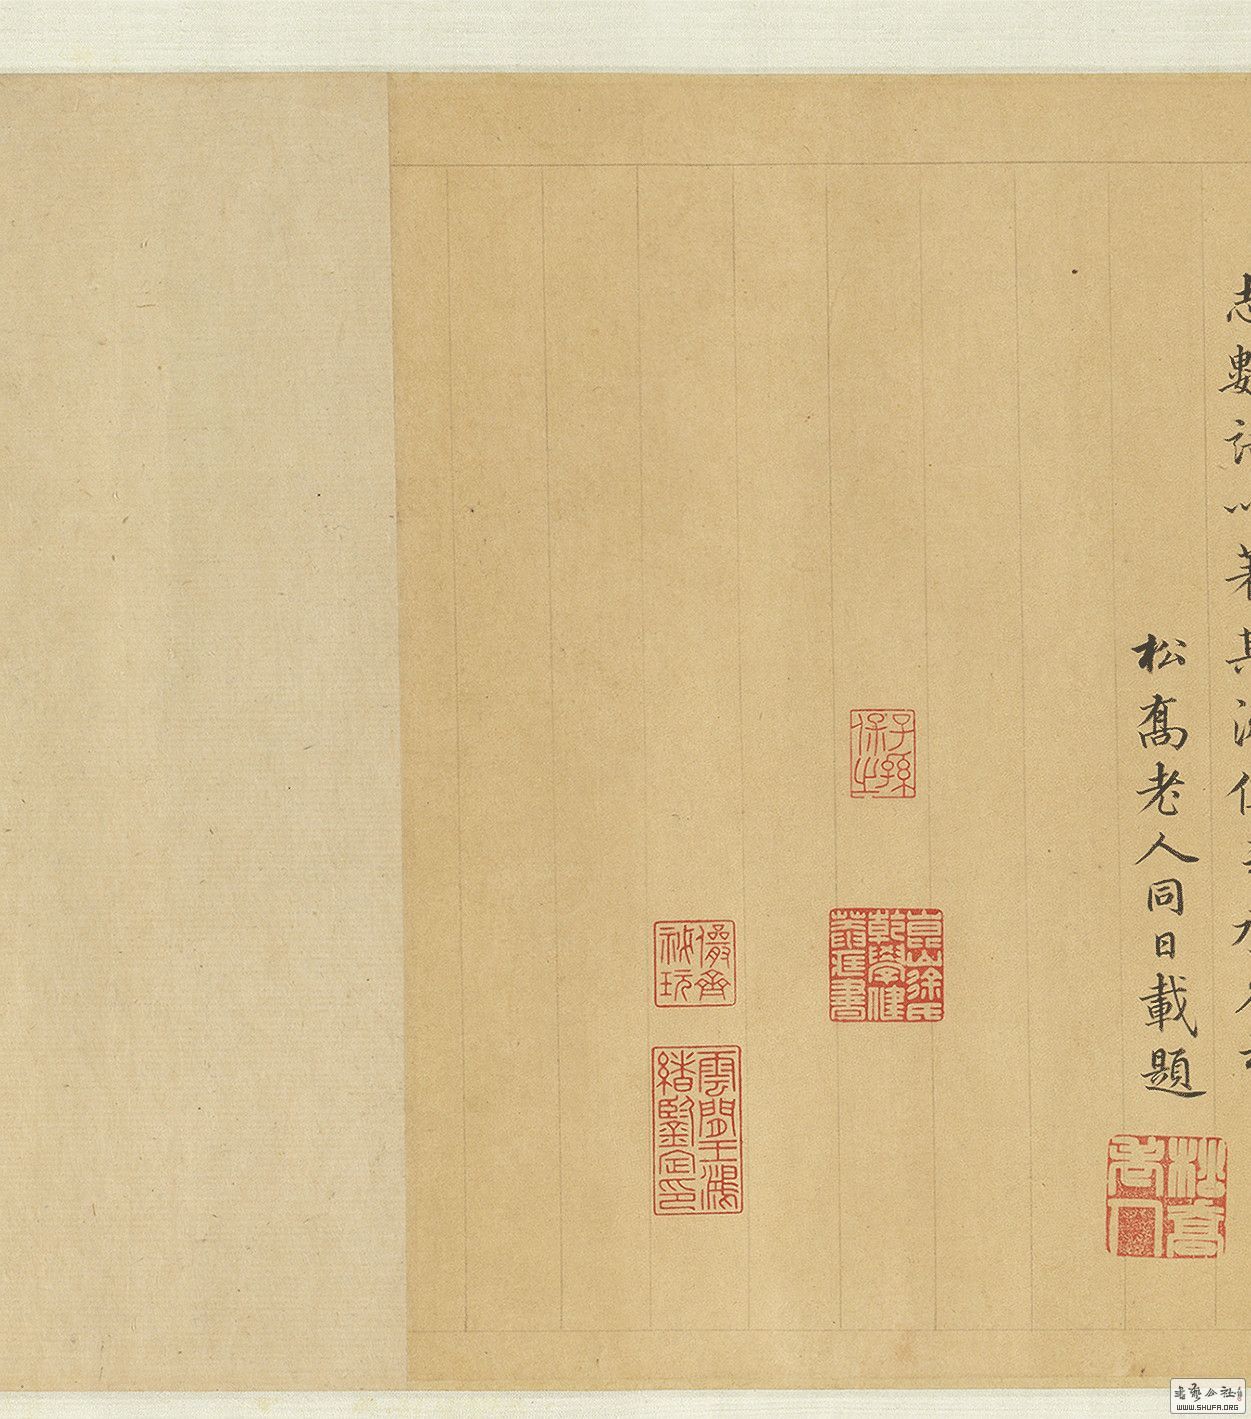 志數語以著其流傳
松喬老人同日載題
松喬老人
子孫保之
崑山徐氏乾學健菴藏書
儼齋祕玩
雲間王鴻緒鑒定印
書藝公社
WWW.SHUFA.ORG